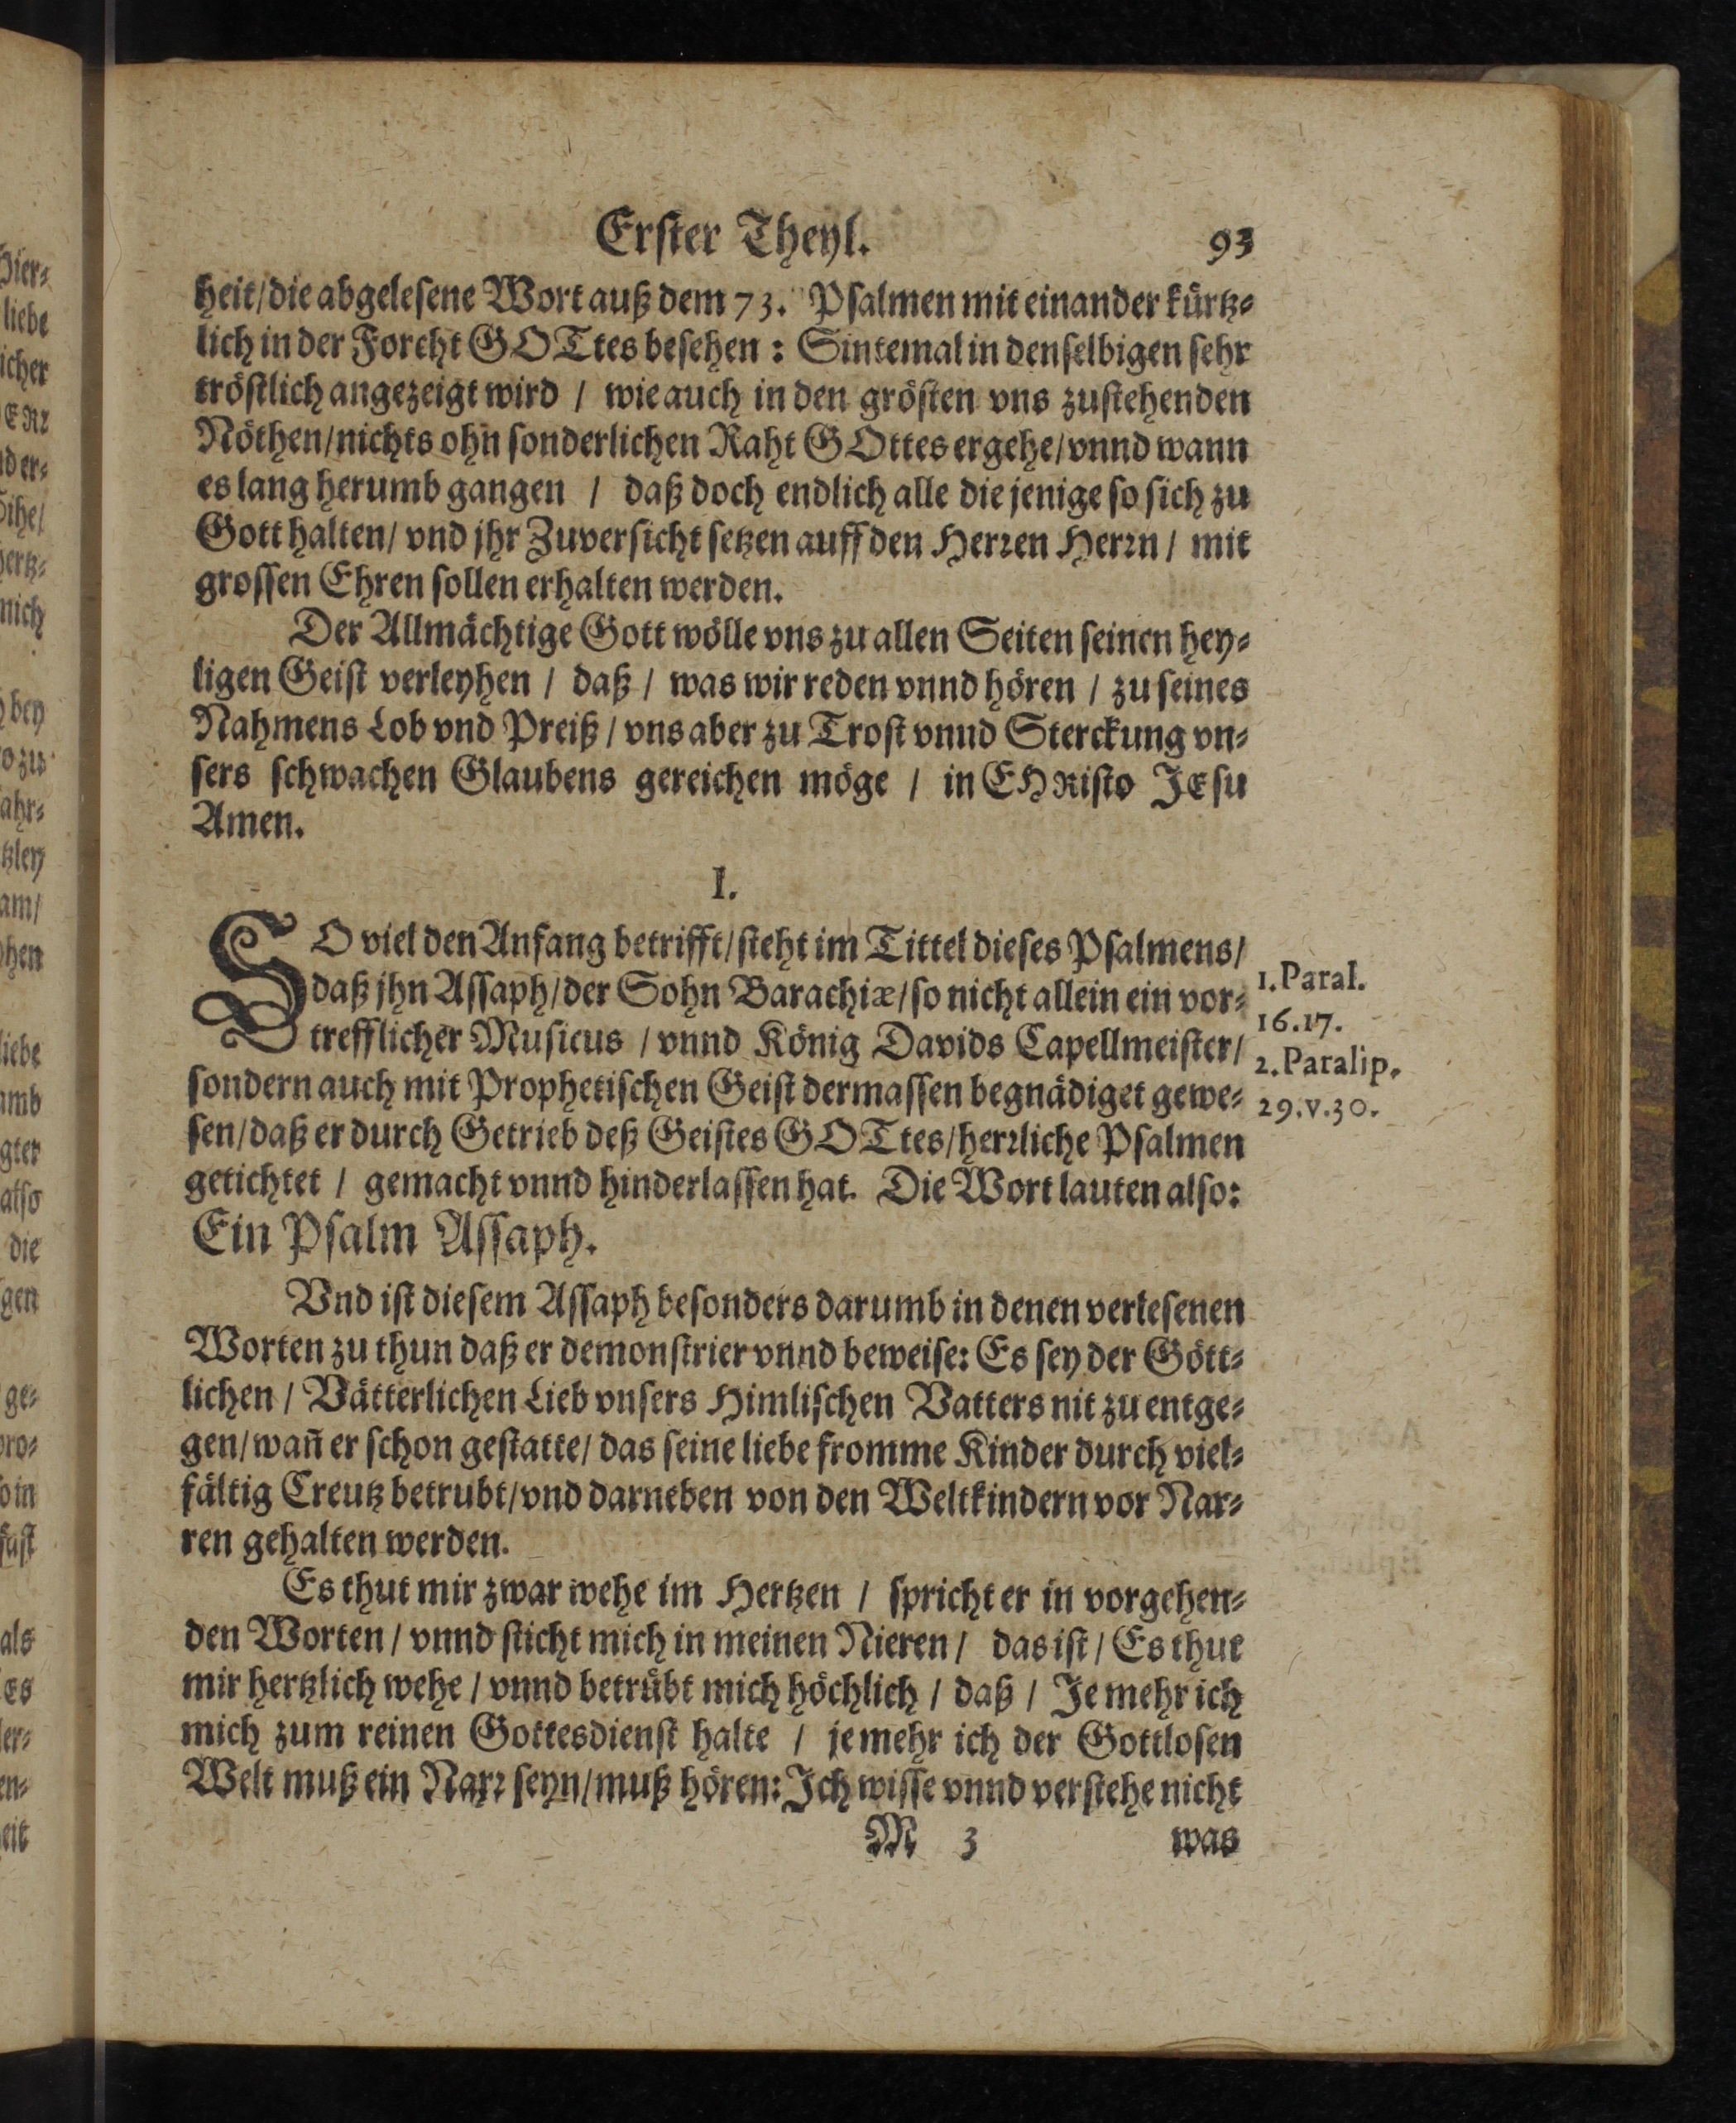 Erster Theyl. 93
heit/die abgelesene Wort auß dem 73. Psalmen mit einander kürtz-
lich in der Forcht GOTtes besehen: Sintemal in denselbigen sehr
tröstlich angezeigt wird / wie auch in den grösten vns zustehenden
Nöthen/nichts ohn sonderlichen Raht GOttes ergehe/vnnd wann
es lang herumb gangen / daß doch endlich alle die jenige so sich zu
Gott halten/ vnd jhr Zuversicht setzen auff den Herren Herrn/ mit
grossen Ehren sollen erhalten werden.
Der Allmächtige Gott wölle vns zu allen Seiten seinen hey-
ligen Geist verleyhen / daß / was wir reden vnnd hören / zu seines
Nahmens Lob vnd Preiß / vns aber zu Trost vnnd Sterckung vn-
sers schwachen Glaubens gereichen möge / in CHRisto JEsu
Amen.
I.
SO viel den Anfang betrifft/steht im Tittel dieses Psalmens/
daß jhn Assaph/der Sohn Barachiæ/so nicht allein ein vor-
1. Paral.
16.17.
trefflicher Musicus / vnnd König Davids Capellmeister/
2. Paralip.
sondern auch mit Prophetischen Geist dermassen begnädiget gewe-
29.v.30.
sen/daß er durch Getrieb deß Geistes GOTtes/herrliche Psalmen
getichtet / gemacht vnnd hinderlassen hat. Die Wort lauten also:
Ein Psalm Assaph.
Vnd ist diesem Assaph besonders darumb in denen verlesenen
Worten zu thun daß er demonstrier vnnd beweise: Es sey der Gött-
lichen / Vätterlichen Lieb vnsers Himlischen Vatters nit zu entge-
gen/wañ er schon gestatte/ das seine liebe fromme Kinder durch viel-
fältig Creutz betrubt/vnd darneben von den Weltkindern vor Nar-
ren gehalten werden.
Es thut mir zwar wehe im Hertzen / spricht er in vorgehen-
den Worten / vnnd sticht mich in meinen Nieren / das ist / Es thut
mir hertzlich wehe / vnnd betrübt mich höchlich / daß / Je mehr ich
mich zum reinen Gottesdienst halte / je mehr ich der Gottlosen
Welt muß ein Narr seyn/muß hören: Ich wisse vnnd verstehe nicht
M 3 was